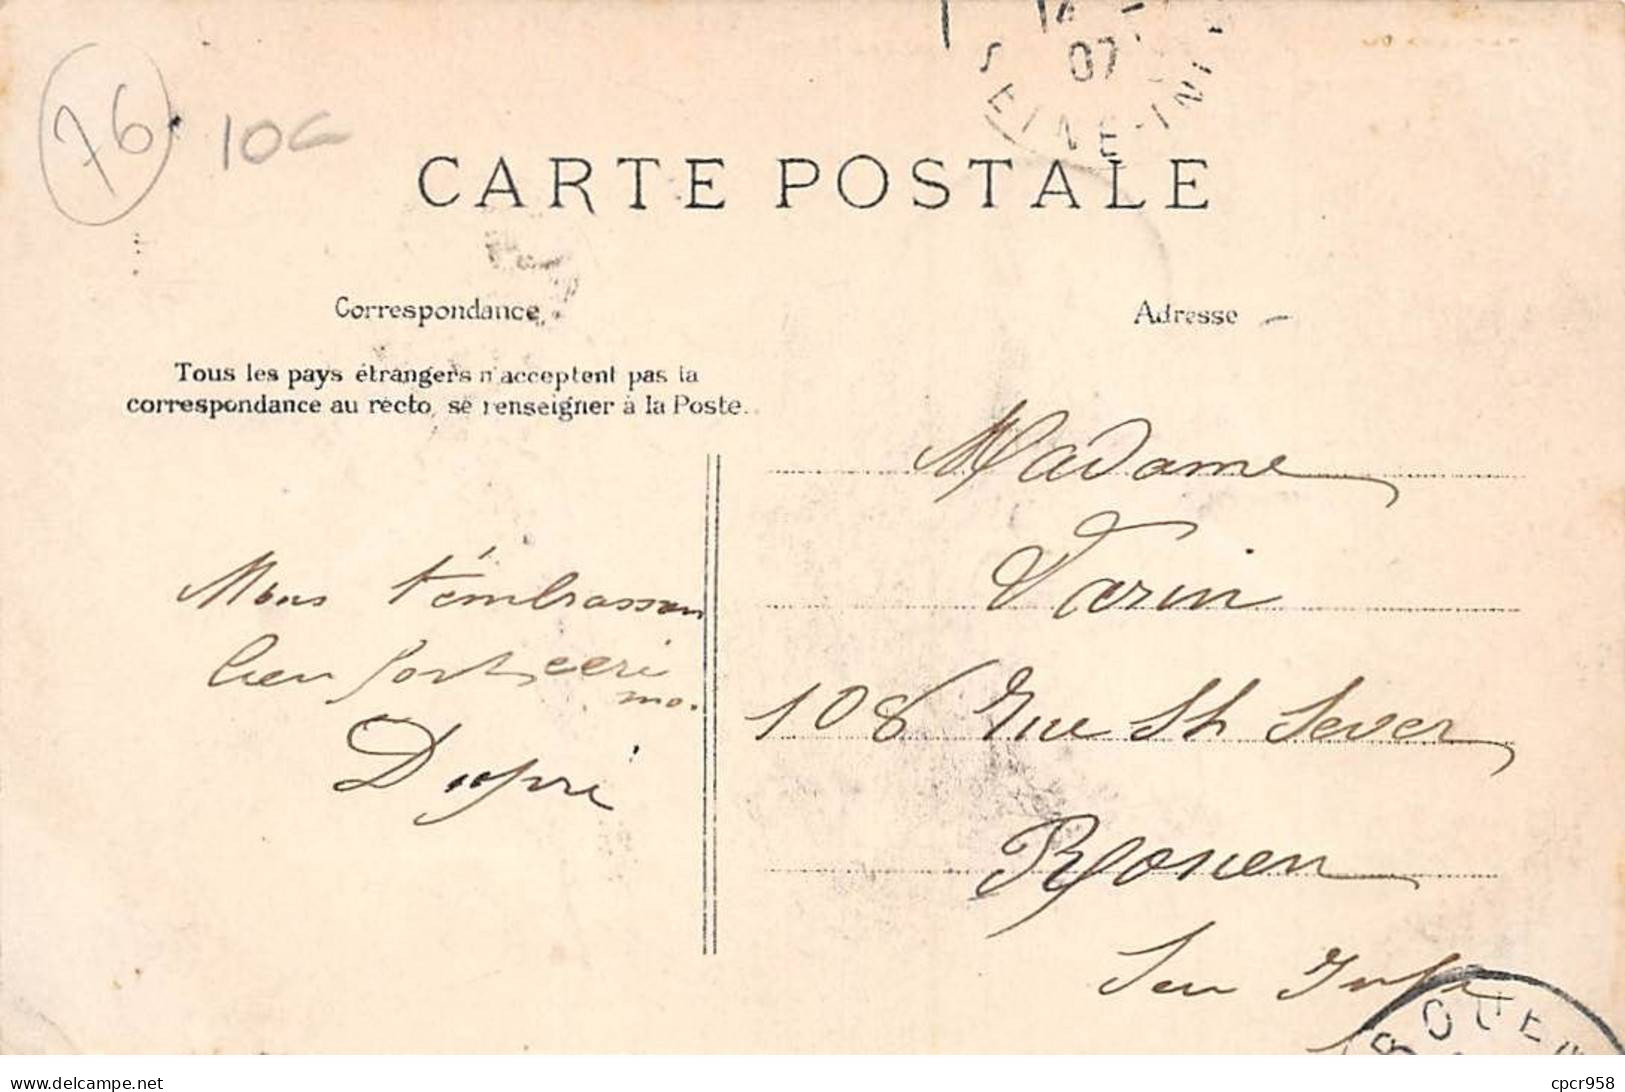 76
10€
07
SEINE-INF
CARTE POSTALE
Correspondance
Adresse
Tous les pays étrangers n'acceptent pas la
correspondance au recto, se renseigner à la Poste.
Madame
Varin
108 Rue St Sever
Rouen
Sein Infr
Nous t'embrasson
bien fort
Dupré
ROUEN
www.delcampe.net
cpcr958